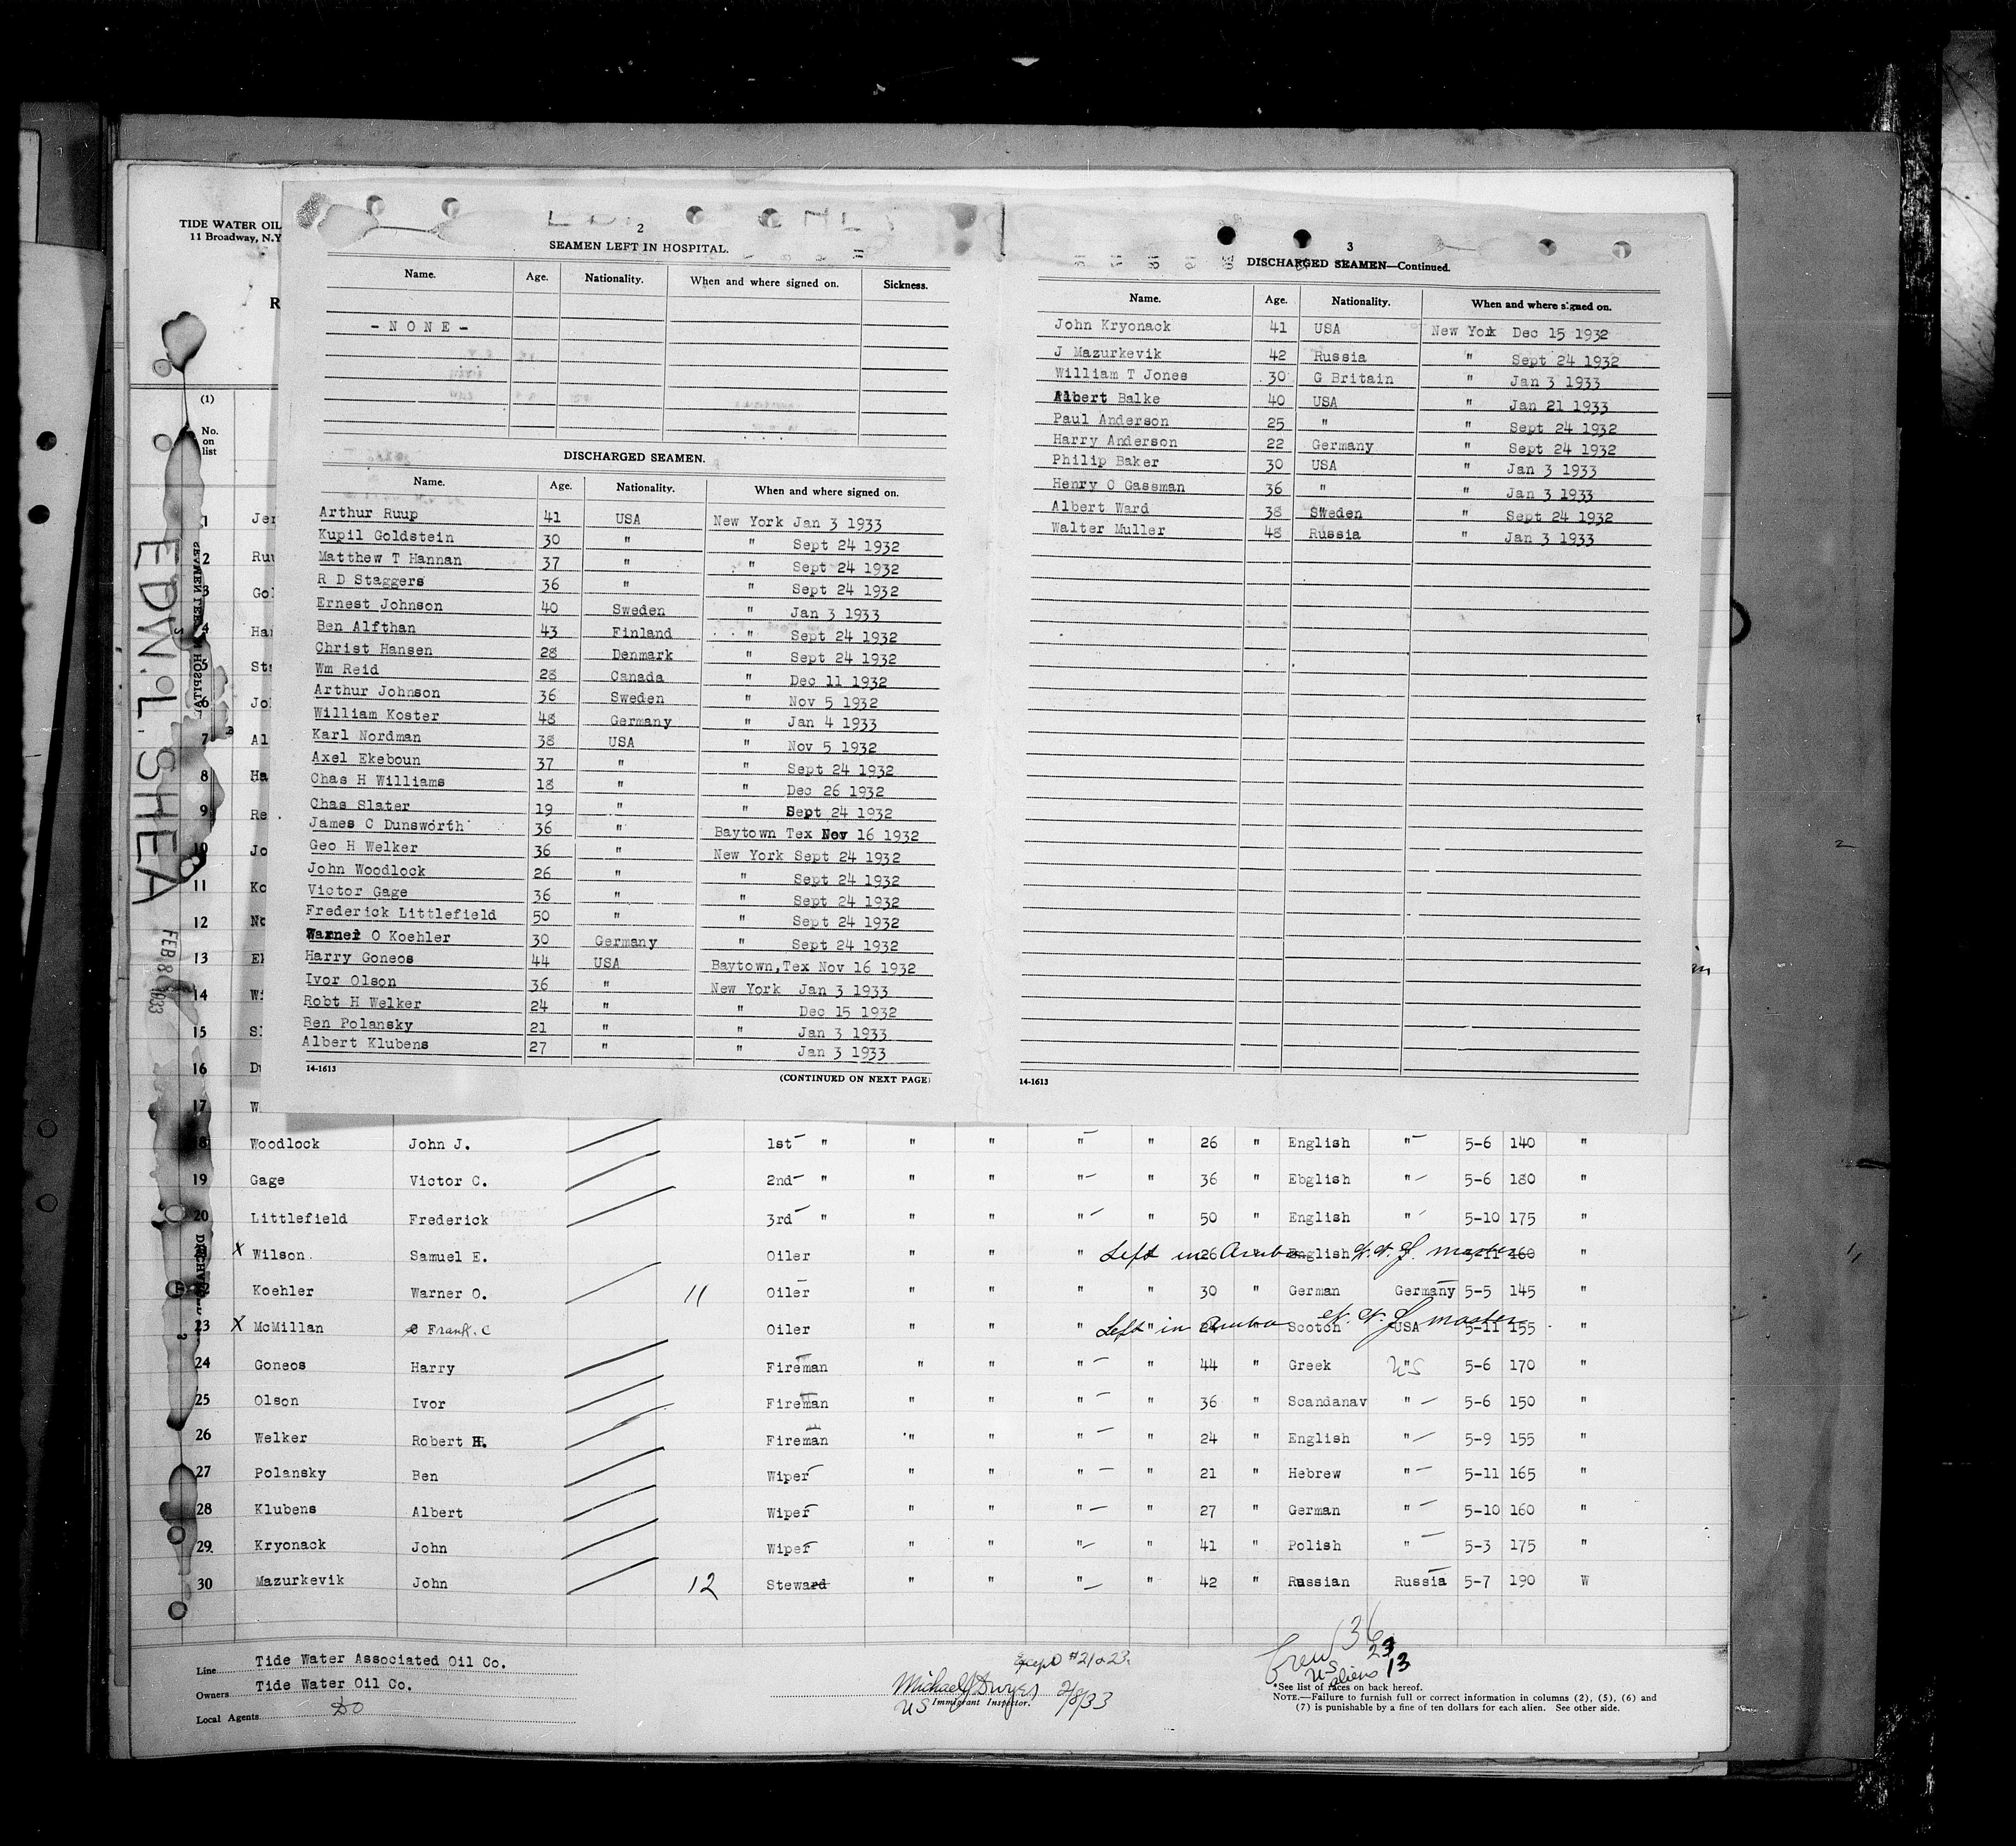 TIDE WATER OIL
11 Broadway, N.Y
R
2
SEAMEN LEFT IN HOSPITAL.
Name. Age. Nationality. When and where signed on. Sickness.
- N O N E -
DISCHARGED SEAMEN.
Name. Age. Nationality. When and where signed on.
Arthur Ruup 41 USA New York Jan 3 1933
Kupil Goldstein 30 " " Sept 24 1932
Matthew T Hannan 37 " " Sept 24 1932
R D Staggers 36 " " Sept 24 1932
Ernest Johnson 40 Sweden " Jan 3 1933
Ben Alfthan 43 Finland " Sept 24 1932
Christ Hansen 28 Denmark " Sept 24 1932
Wm Reid 28 Canada " Dec 11 1932
Arthur Johnson 36 Sweden " Nov 5 1932
William Koster 48 Germany " Jan 4 1933
Karl Nordman 38 USA " Nov 5 1932
Axel Ekeboun 37 " " Sept 24 1932
Chas H Williams 18 " " Dec 26 1932
Chas Slater 19 " " Sept 24 1932
James C Dunsworth 36 " Baytown Tex Nov 16 1932
Geo H Welker 36 " New York Sept 24 1932
John Woodlock 26 " " Sept 24 1932
Victor Gage 36 " " Sept 24 1932
Frederick Littlefield 50 " " Sept 24 1932
Warner O Koehler 30 Germany " Sept 24 1932
Harry Goneos 44 USA Baytown,Tex Nov 16 1932
Ivor Olson 36 " New York Jan 3 1933
Robt H Welker 24 " " Dec 15 1932
Ben Polansky 21 " " Jan 3 1933
Albert Klubens 27 " " Jan 3 1933
14-1613 (CONTINUED ON NEXT PAGE)
3
DISCHARGED SEAMEN—Continued.
Name. Age. Nationality. When and where signed on.
John Kryonack 41 USA New York Dec 15 1932
J Mazurkevik 42 Russia " Sept 24 1932
William T Jones 30 G Britain " Jan 3 1933
Albert Balke 40 USA " Jan 21 1933
Paul Anderson 25 " " Sept 24 1932
Harry Anderson 22 Germany " Sept 24 1932
Philip Baker 30 USA " Jan 3 1933
Henry C Gassman 36 " " Jan 3 1933
Albert Ward 38 Sweden " Sept 24 1932
Walter Muller 48 Russia " Jan 3 1933
14-1613
(1)
No.
on
list
EDW. L. SHEA
FEB 8 1933
1 Jer
2 Ruu
3 Gol
4 Han
5 Sta
6 Joh
7 Al
8 Ha
9 Re
10 Jo
11 Ko
12 No
13 Ek
14 Wi
15 Sl
16 Du
17 W
18 Woodlock John J. 1st " " " " " 26 " English " 5-6 140 "
19 Gage Victor C. 2nd " " " " " 36 " Ebglish " 5-6 180 "
20 Littlefield Frederick 3rd " " " " " 50 " English " 5-10 175 "
21 X Wilson Samuel E. Oiler " " " Left in Aruba 26 English master 5-11 160
22 Koehler Warner O. 11 Oiler " " " " 30 " German Germany 5-5 145 "
23 X McMillan Frank. C Oiler " " " Left in Aruba " 24 " Scotch USA master 5-11 155 "
24 Goneos Harry Fireman " " " " 44 " Greek " US 5-6 170 "
25 Olson Ivor Fireman " " " " 36 " Scandanav " 5-6 150 "
26 Welker Robert H. Fireman " " " " 24 " English " 5-9 155 "
27 Polansky Ben Wiper " " " " 21 " Hebrew " 5-11 165 "
28 Klubens Albert Wiper " " " " 27 " German " 5-10 160 "
29. Kryonack John Wiper " " " " 41 " Polish " 5-3 175 "
30 Mazurkevik John 12 Steward " " " " 42 " Russian Russia 5-7 190 W
Line Tide Water Associated Oil Co.
Owners Tide Water Oil Co.
Local Agents DO
Except #21 & 23.
Michael J Dwyer 2/8/33
US Immigrant Inspector.
Crew 36
US 23
aliens 13
*See list of races on back hereof.
NOTE.—Failure to furnish full or correct information in columns (2), (5), (6) and
(7) is punishable by a fine of ten dollars for each alien. See other side.